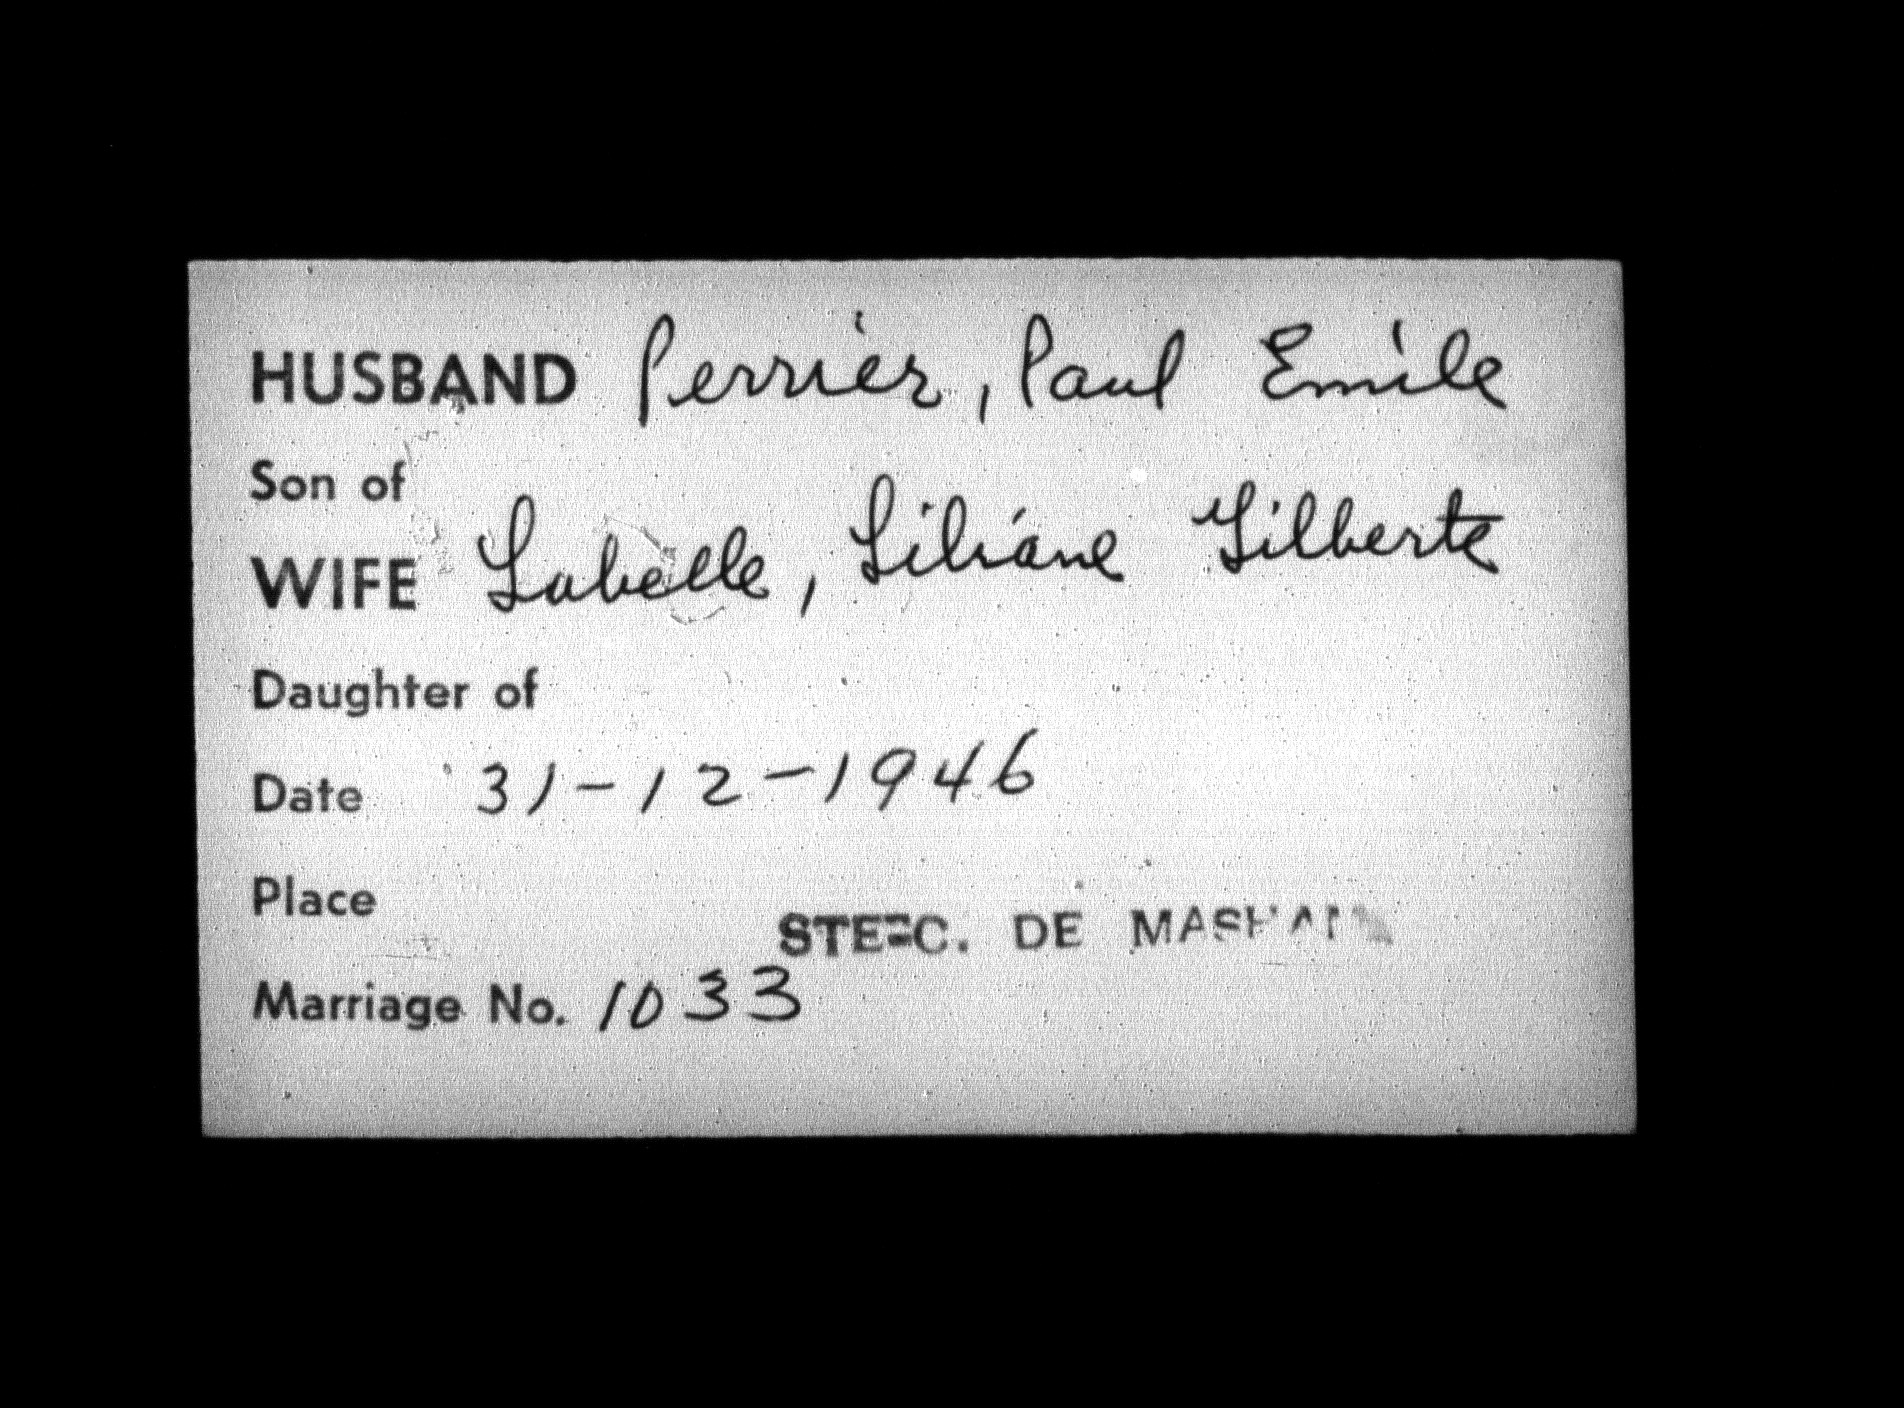 HUSBAND Perrier, Paul Emile
Son of
WIFE Labelle, Liliane Gilberte
Daughter of
Date 31-12-1946
Place
STE-C. DE
Marriage No. 1033